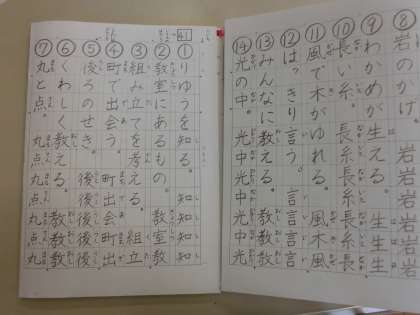 41
①りゆうを知る。 知知知
②教室にあるもの。 教室教
③組み立てを考える。 組立
④町で出会う。 町出会町出
⑤後ろのせき。 後後後後
⑥くわしく教える。 教教
⑦丸と点。 丸点丸点丸
⑧岩のかげ。 岩岩岩岩
⑨わかめが生える。 生生生
⑩長い糸。 長糸長糸長
⑪風で木がゆれる。 風木風
⑫はっきり言う。 言言言
⑬みんなに教える。 教教教
⑭光の中。 光中光中光